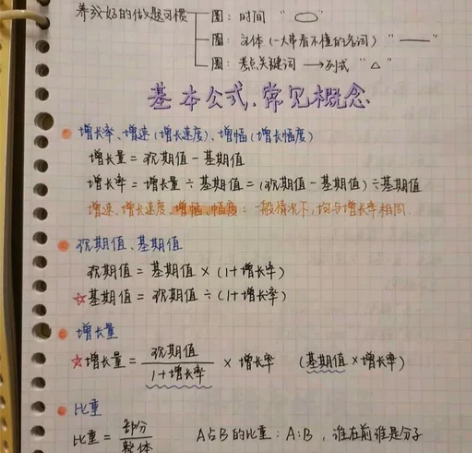 养成好的做题习惯 圈：时间 "○"
圈：主体（一大串看不懂的名词）"——"
圈：考点关键词 → 列式 "△"
基本公式、常见概念
增长率、增速（增长速度）、增幅（增长幅度）
增长量 = 现期值 - 基期值
增长率 = 增长量 ÷ 基期值 = (现期值 - 基期值) ÷ 基期值
增速、增长速度、增幅、幅度：一般情况下，均与增长率相同.
现期值、基期值
现期值 = 基期值 × (1+增长率)
☆基期值 = 现期值 ÷ (1+增长率)
增长量
☆增长量 = 现期值/1+增长率 × 增长率 (基期值 × 增长率)
比重
比重 = 部分/整体 A占B的比重：A:B，谁在前谁是分子